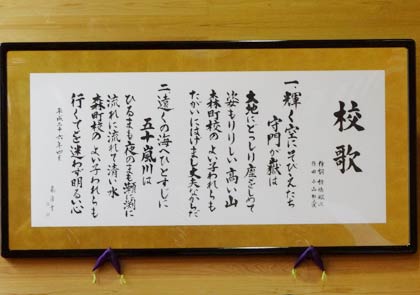 校歌
一、輝く空にそびえたち
守門が嶽は
大地にどっしり座をしめて
姿もりりしい高い山
森町校のよい子われらも
たがいにはげまし丈夫なからだ
二、遠くの海へひとすじに
五十嵐川は
ひるまも夜のまも瀬に淵に
流れに流れて清い水
森町校のよい子われらも
行くてを迷わず明るい心
平成二十六年四月